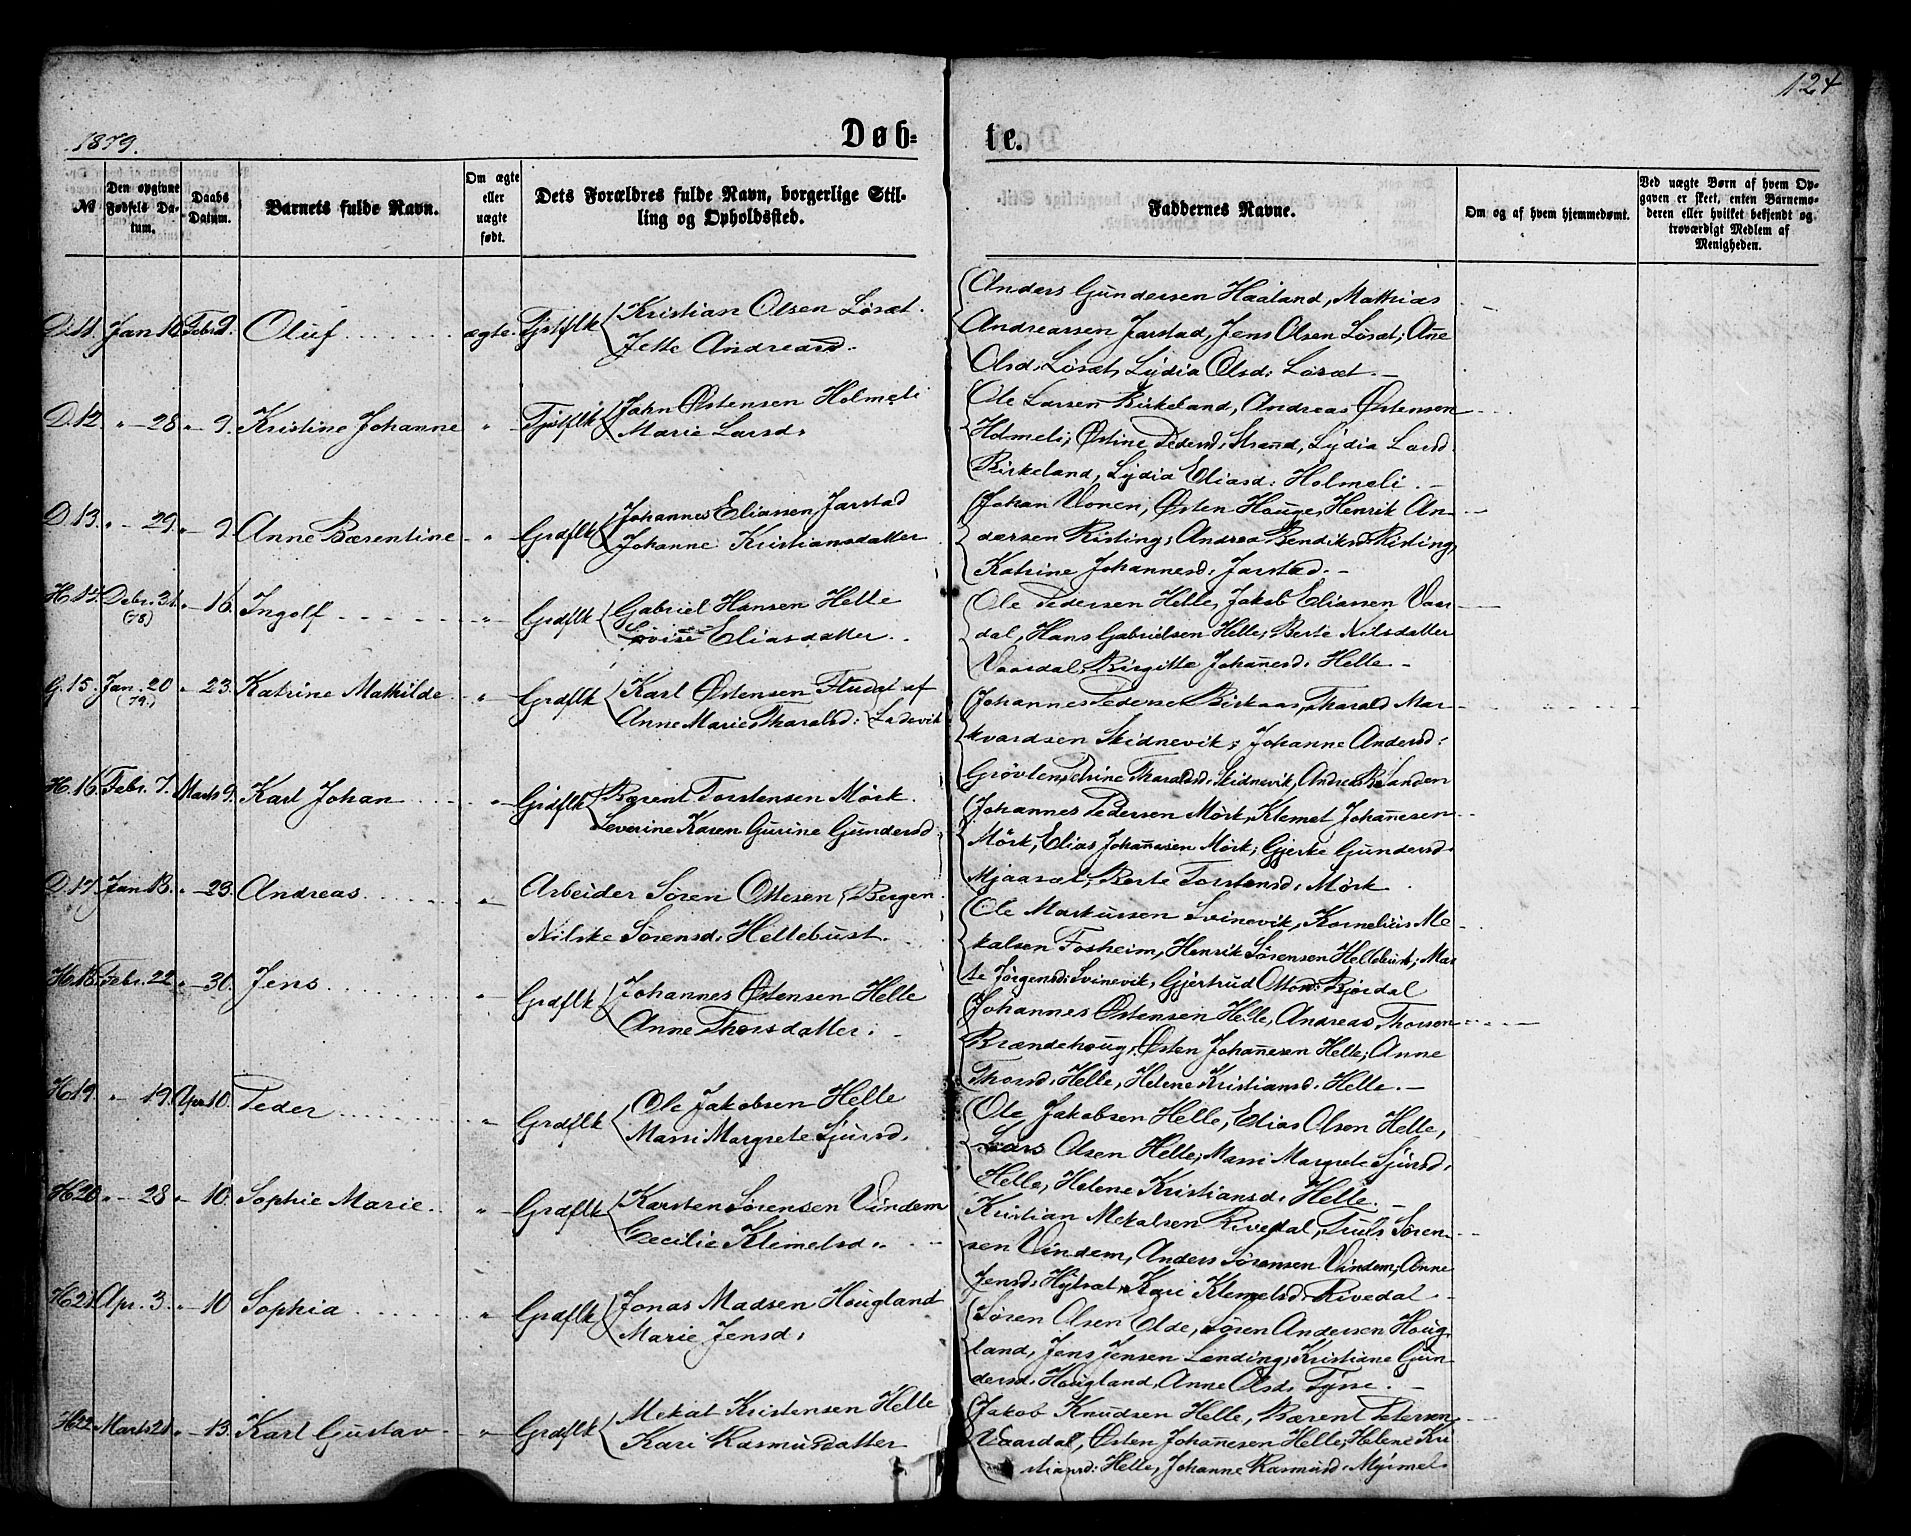 124
1879.
Døb=
te.
№
Den opgivne Fødsels Da-tum.
Daabs Datum.
Barnets fulde Navn.
Om ægte eller uægte født.
Dets Forældres fulde Navn, borgerlige Stil-
ling og Opholdssted.
Faddernes Navne.
Om og af hvem hjemmedøbt.
Ved uægte Børn af hvem Op-
gaven er skeet, enten Barnemo-
deren eller hvilket bekjendt og
troværdigt Medlem af
Menigheden.
D.11. Jan 16 Febr 9. Oluf ægte. Tjstflk Kristian Olsen Løsæt.
Jette Andreasd.
Anders Gundersen Haaland, Mathias
Andreassen Jarstad, Jens Olsen Løsæt; Ane
Olsd. Løsæt, Lydia Olsd: Løsæt. —
D.12. " — 28 " 9. Kristine Johanne " Tjstflk John Østensen Holmeli
Marie Larsd:
Ole Larsen Birkeland, Andreas Østensen
Holmeli; Østine Pedersd: Strand, Lydia Larsd.
Birkeland, Lydia Eliasd: Holmeli. —
D.13. " — 29. " — 9 Anne Bærentine " Grdflk Johannes Eliassen Jarstad
Johanne Kristiansdatter
Johan Vonen, Østen Houge, Henrik An-
dersen Risting; Andrea Bendiksd: Risting,
Katrine Johannesd: Jarstad. —
H.14. Debr. 31. (78) " — 16. Ingolf " Grdflk Gabriel Hansen Helle
Lovise Eliasdatter.
Ole Pedersen Helle, Jakob Eliassen Vaar-
dal, Hans Gabrielsen Helle; Berte Nilsdatter
Vaardal, Birgitte Johanesd: Helle —
G.15. Jan. 20 (79.) " — 23. Katrine Mathilde " Grdflk Karl Østensen Flugt af
Anne Marie Tharalsd: Ladevik
Johannes Pedersen Birkaas, Tharald Mar-
kvardsen Skidnevik; Johanne Andersd:
Grövlen, Trine Tharaldsd: Skidnevik, Andrea B. Sanden
H.16. Febr. 7. Marts 9. Karl Johan " Grdflk Berent Torstensen Mörk.
Severine Karen Gurine Gundersd.
Johannes Pedersen Mörk, Klemet Johanesen
Mörk, Elias Johanesen Mörk; Gjerke Gundersd.
Mjaasæt, Berte Torstensd: Mörk.
D.17. Jan 13. " — 23. Andreas " Arbeider Søren Ottesen, Bergen.
Nilske Sørensd: Hellebust.
Ole Markussen Svinevik, Kornelius Me-
kalsen Fosheim, Henrik Sørensen Hellebust; Mar-
te Jørgensd: Svinevik, Gjertrud Ottosd: Bjørdal
H.18. Febr. 22 " — 30. Jens " Grdflk Johannes Østensen Helle
Anne Thorsdatter.
Johannes Østensen Helle, Andreas Thorsen
Brændehoug, Østen Johanesen Helle; Anne
Thorsd: Helle, Helene Kristiansd: Helle. —
H.19. " 19. Apr. 10. Peder " Grdflk Ole Jakobsen Helle
Marri Margrete Sjursd.
Ole Jakobsen Helle, Elias Olsen Helle,
Lars Olsen Helle; Marri Margrete Sjursd.
Helle, Helene Kristiansd: Helle. —
H.20. " — 28 " 10. Sophie Marie " Grdflk Karsten Sørensen Vindem
Cecilie Klemetsd.
Kristian Mekalsen Rivedal, Truls Søren-
sen Vindem, Anders Sørensen Vindem; Anne
Jensd: Hylsæt, Kari Klemetsd: Rivedal —
H.21. Apr. 3. " — 10 Sophia " Grdflk Jonas Madsen Hougland
Marie Jensd.
Søren Olsen Olde, Søren Andersen Houg-
land, Jens Jensen Lending; Kristiane Gun-
dersd: Hougland, Anne Olsd: Tysse. —
H.22. Marts 21. " — 13. Karl Gustav " Grdflk Mekal Kristensen Helle
Kari Rasmusdatter
Jakob Knudsen Helle, Bærent Petersen
Vaardal, Østen Johanesen Helle; Helene Kri-
stiansd: Helle, Johanne Rasmusd: Myrmel.